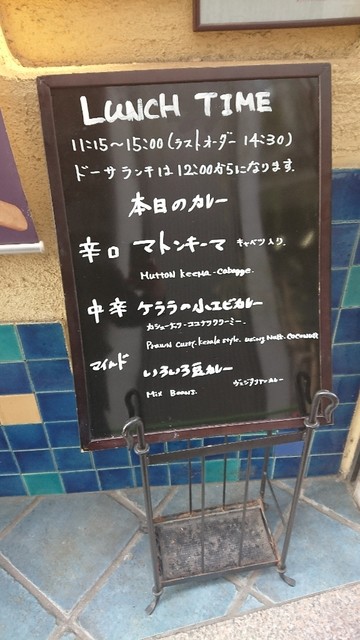 LUNCH TIME
11:15～15:00 (ラストオーダー 14:30)
ドーサランチは12:00からになります.
本日のカレー
辛口 マトンキーマ キャベツ入り.
Mutton keema-cabagge.
中辛 ケララの小エビカレー
カシューナッツ・ココナツクリーミー.
Prawn Curry. kerala style. using Nats. Coconuts
マイルド いろいろ豆カレー
Mix Beans. ヴェジタリアンカレー